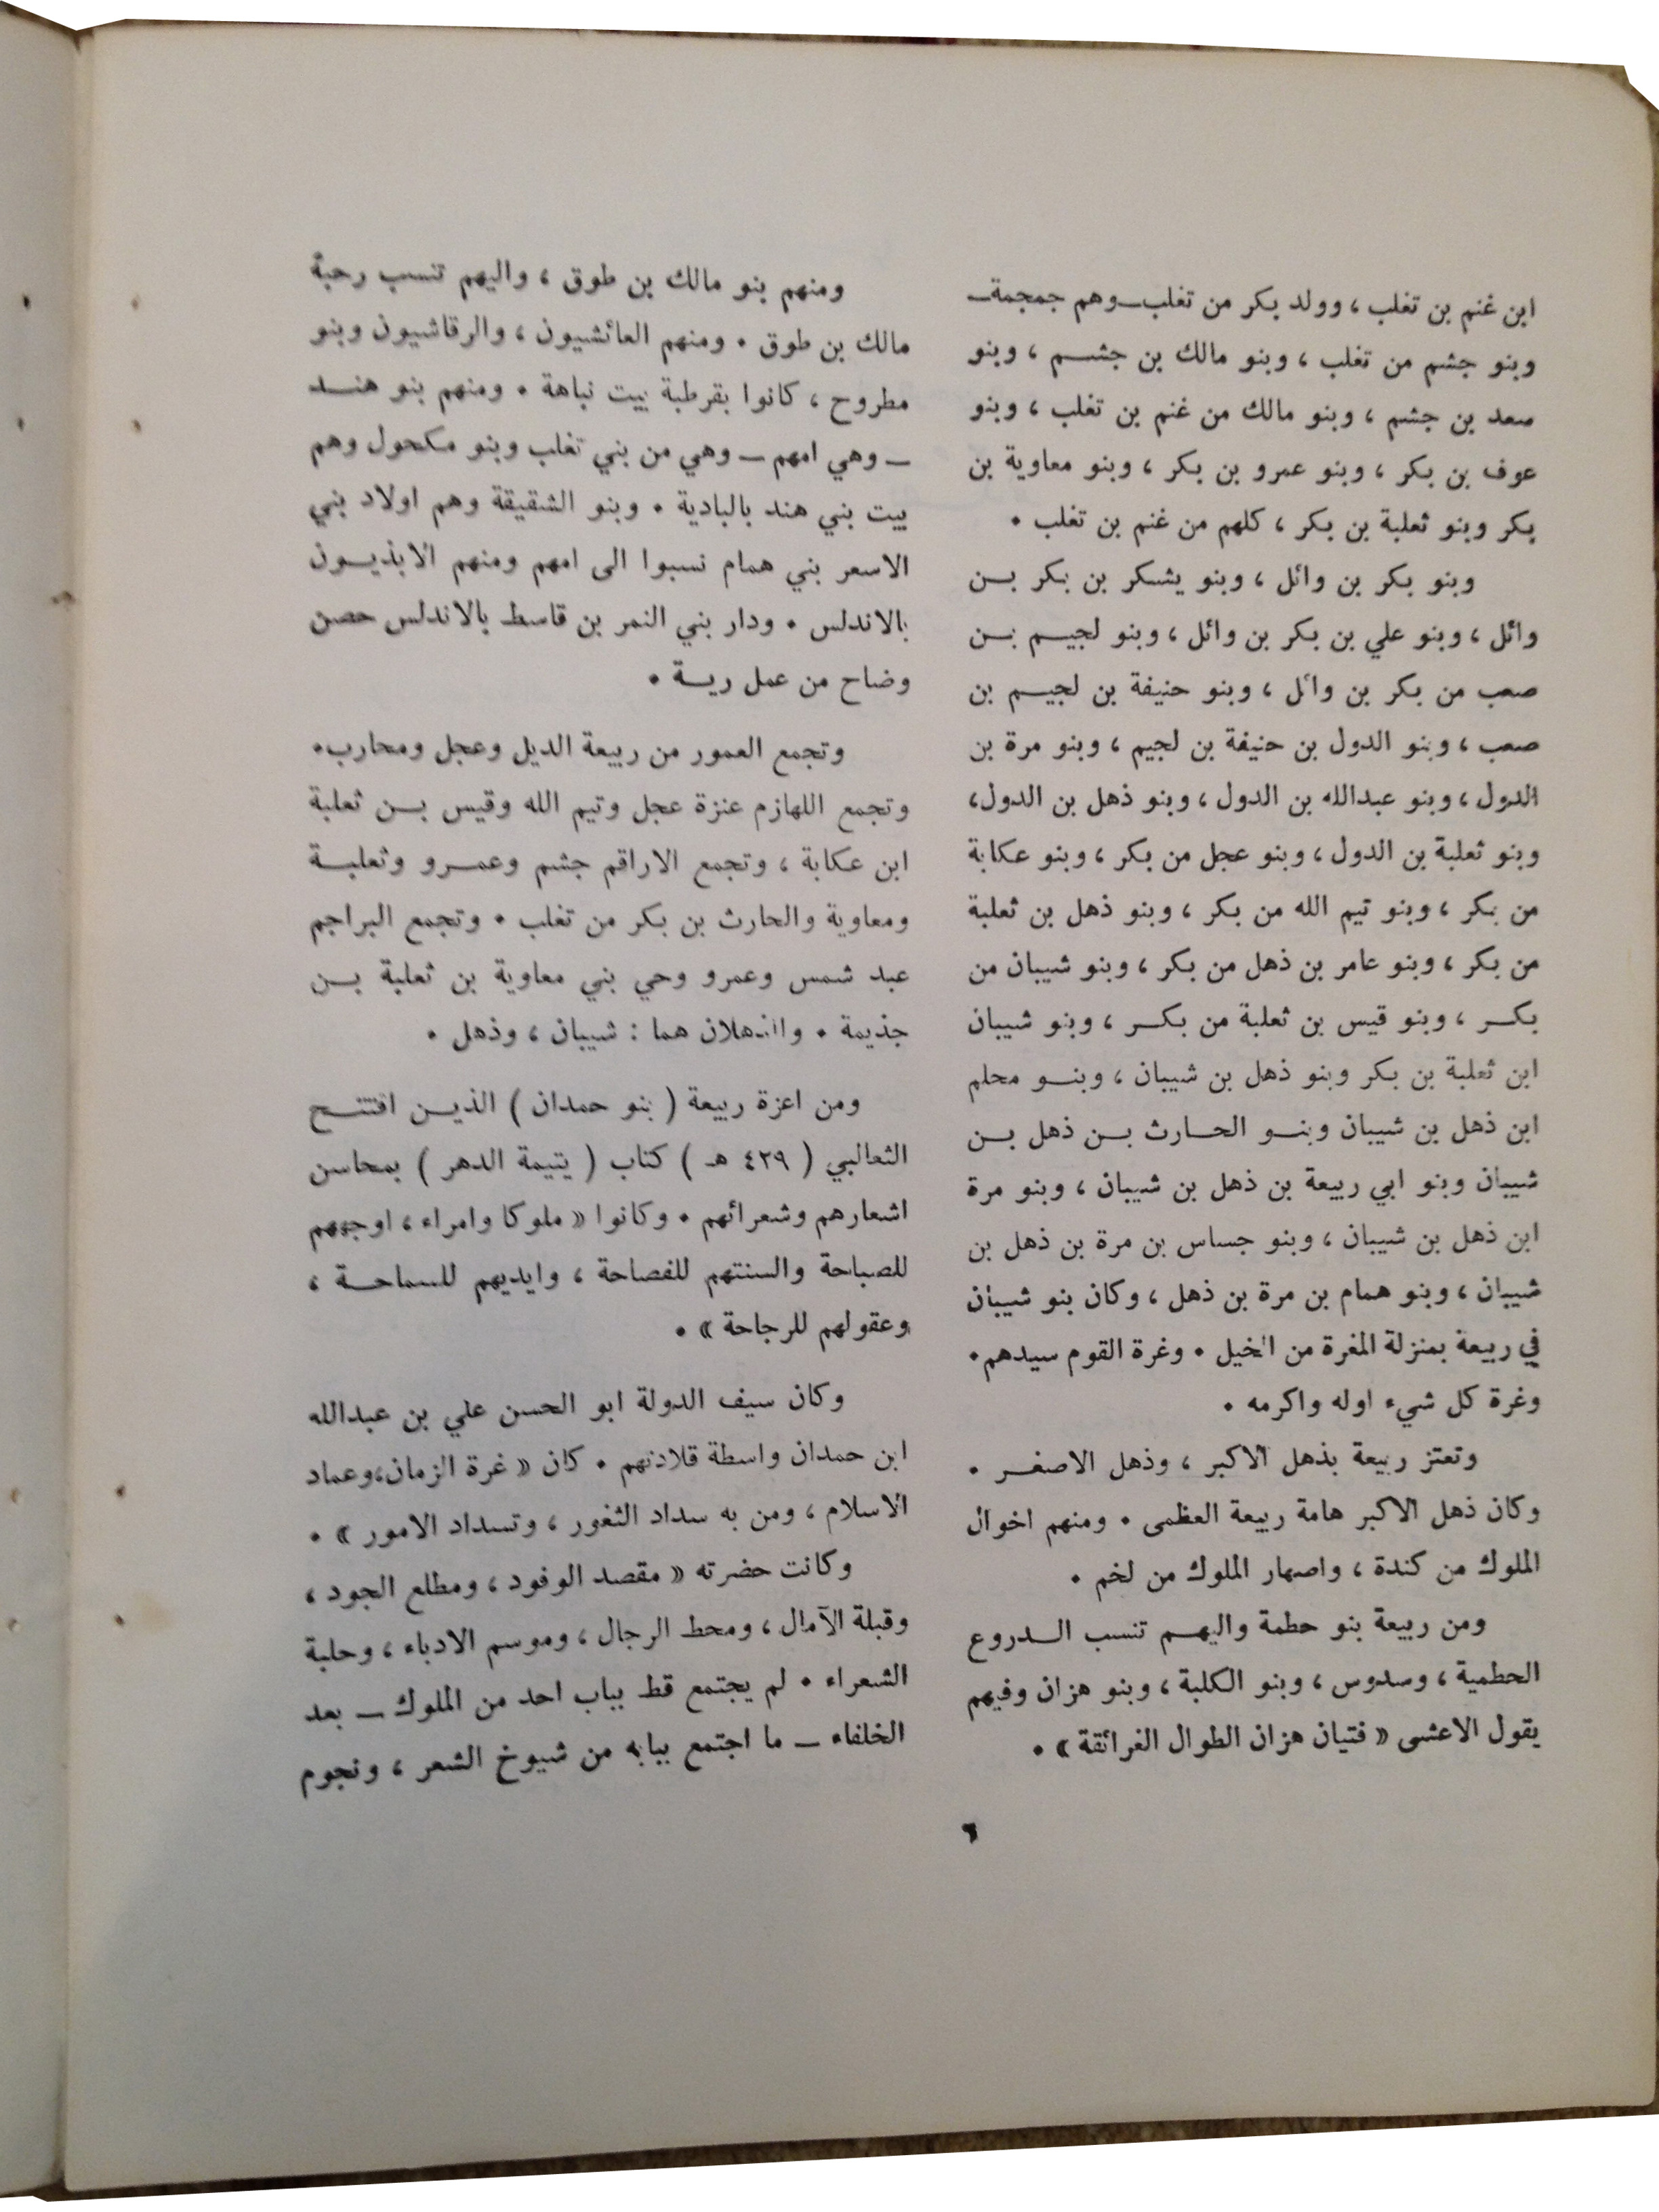 ابن غنم بن تغلب ، وولد بكر من تغلب ــ وهم جمجمة ــ
وبنو جشم من تغلب ، وبنو مالك بن جشــم ، وبنو
سعد بن جشم ، وبنو مالك من غنم بن تغلب ، وبنو
عوف بن بكر ، وبنو عمرو بن بكر ، وبنو معاوية بن
بكر وبنو ثعلبة بن بكر ، كلهم من غنم بن تغلب .
وبنو بكر بن وائل ، وبنو يشكر بن بكر بــن
وائل ، وبنو علي بن بكر بن وائل ، وبنو لجيــم بــن
صعب من بكر بن وائل ، وبنو حنيفة بن لجيــم بن
صعب ، وبنو الدول بن حنيفة بن لجيم ، وبنو مرة بن
الدول ، وبنو عبدالله بن الدول ، وبنو ذهل بن الدول ،
وبنو ثعلبة بن الدول ، وبنو عجل من بكر ، وبنو عكابة
من بكر ، وبنو تيم الله من بكر ، وبنو ذهل بن ثعلبة
من بكر ، وبنو عامر بن ذهل من بكر ، وبنو شيبان من
بكــر ، وبنو قيس بن ثعلبة من بكــر ، وبنو شيبان
ابن ثعلبة بن بكر وبنو ذهل بن شيبان ، وبنــو محلم
ابن ذهل بن شيبان وبنــو الحــارث بــن ذهل بــن
شيبان وبنو ابي ربيعة بن ذهل بن شيبان ، وبنو مرة
ابن ذهل بن شيبان ، وبنو جساس بن مرة بن ذهل بن
شيبان ، وبنو همام بن مرة بن ذهل ، وكان بنو شيبان
في ربيعة بمنزلة المغرة من الخيل . وغرة القوم سيدهم .
وغرة كل شيء اوله واكرمه .
وتعتز ربيعة بذهل الاكبر ، وذهل الاصغــر .
وكان ذهل الاكبر هامة ربيعة العظمى . ومنهم اخوال
الملوك من كندة ، واصهار الملوك من لخم .
ومن ربيعة بنو حطمة واليهــم تنسب الــدروع
الحطمية ، وسدوس ، وبنو الكلبة ، وبنو هزان وفيهم
يقول الاعشى « فتيان هزان الطوال الغرائقة » .
ومنهم بنو مالك بن طوق ، واليهم تنسب رحبة
مالك بن طوق . ومنهم العائشيون ، والرقاشيون وبنو
مطروح ، كانوا بقرطبة بيت نباهة . ومنهم بنو هنــد
ــ وهي امهم ــ وهي من بني تغلب وبنو مكحول وهم
بيت بني هند بالبادية . وبنو الشقيقة وهم اولاد بني
الاسعر بني همام نسبوا الى امهم ومنهم الابذيــون
بالاندلس . ودار بني النمر بن قاسط بالاندلس حصن
وضاح من عمل ريــة .
وتجمع العمور من ربيعة الديل وعجل ومحارب .
وتجمع اللهازم عنزة عجل وتيم الله وقيس بــن ثعلبة
ابن عكابة ، وتجمع الاراقم جشم وعمــرو وثعلبــة
ومعاوية والحارث بن بكر من تغلب . وتجمع البراجم
عبد شمس وعمرو وحي بني معاوية بن ثعلبة بــن
جذيمة . والذهلان هما : شيبان ، وذهل .
ومن اعزة ربيعة ( بنو حمدان ) الذيــن افتتــح
الثعالبي ( ٤٢٩ هـ ) كتاب ( يتيمة الدهر ) بمحاسن
اشعارهم وشعرائهم . وكانوا « ملوكا وامراء ، اوجههم
للصباحة والسنتهم للفصاحة ، وايديهم للسماحــة ،
وعقولهم للرجاحة » .
وكان سيف الدولة ابو الحسن علي بن عبدالله
ابن حمدان واسطة قلادتهم . كان « غرة الزمان ، وعماد
الاسلام ، ومن به سداد الثغور ، وتسداد الامور » .
وكانت حضرته « مقصد الوفود ، ومطلع الجود ،
وقبلة الآمال ، ومحط الرجال ، وموسم الادباء ، وحلبة
الشعراء . لم يجتمع قط بباب احد من الملوك ــ بعد
الخلفاء ــ ما اجتمع ببابه من شيوخ الشعر ، ونجوم
٦